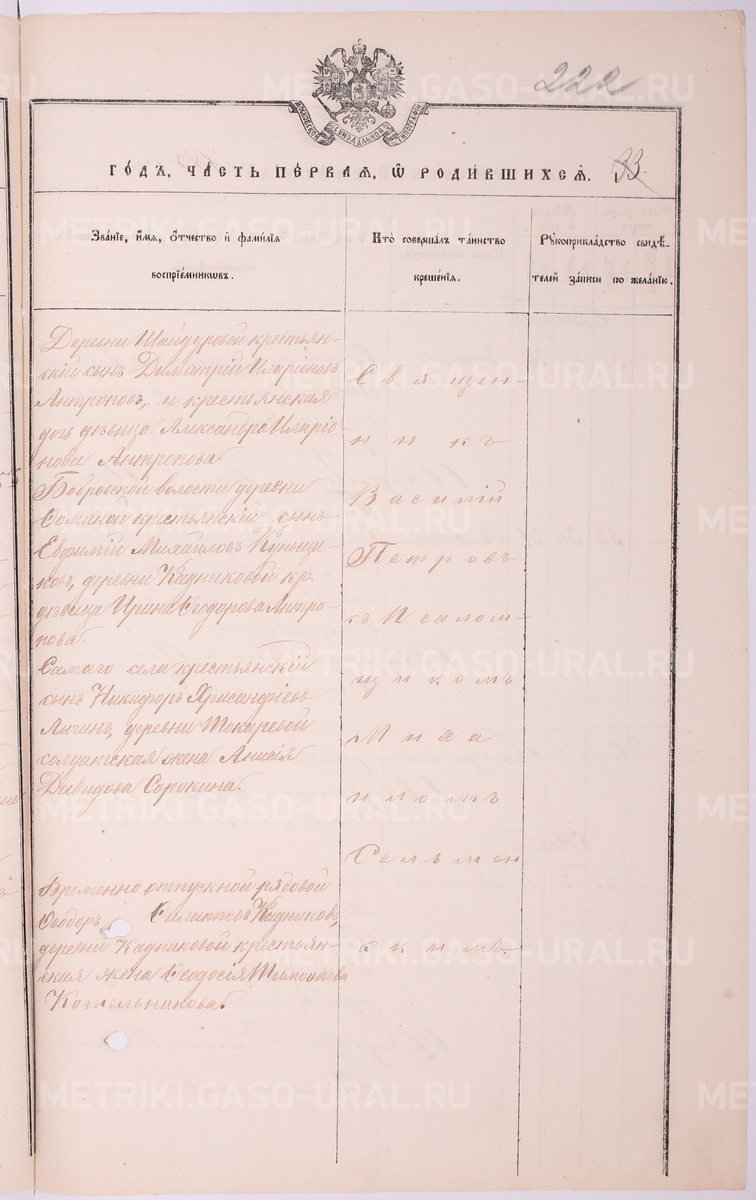 222
МОСКОВСКОЙ СѴНОДАЛЬНОЙ ТИПОГРАФІИ
ГОДЪ, ЧАСТЬ ПЕРВАЯ, Ѡ РОДИВШИХСЯ. 33.
Званіе, имя, отчество и фамилія
воспріемниковъ.
Кто совершалъ таинство
крещенія.
Рукоприкладство свидѣ-
телей записи по желанію.
Деревни Шайдуровой крестьян-
скій сынъ Димитрій Иларіоновъ
Антроповъ, и крестьянская
дочь дѣвица Александра Иларіо-
нова Антропова.
Бобровской волости деревни
Ѳоминой крестьянскій сынъ
Евфимій Михайловъ
новъ, деревни Кадниковой кр.
дѣвица Ирина Ѳеодорова Антро-
пова.
Самаго села крестьянскій
сынъ Никифоръ Хрисанфіевъ
деревни Токаревой
солдатская жена Анисія
Давидова Сорокина.
Временно отпускной рядовой
Ѳеодоръ Филиповъ Кадниковъ,
деревни Кадниковой крестьян-
ская жена Ѳеодосія Тимоѳеева
Котельникова.
Священ-
никъ
Василій
Петровъ
съ Псалом-
щикомъ
Миха
иломъ
Сельмен
скимъ
METRIKI.GASO-URAL.RU